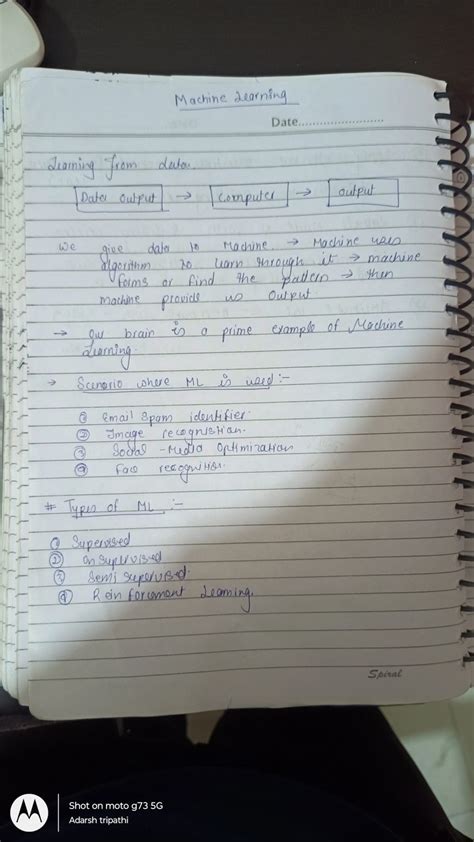 Machine Learning
Date........................
Learning from data
Data output → Computer → output
We give data to Machine → Machine uses
algorithm to learn through it → machine
forms or find the pattern → then
machine provide us Output.
→ Our brain is a prime example of Machine
Learning.
→ Scenario where ML is used :-
① Email Spam identifier.
② Image recognisition.
③ Social - Media Optimization
④ recognition.
# Types of ML :-
① Supervised
② unsupervised
③ Semi supervised.
④ Rein forcement Learning.
Spiral
Shot on moto g73 5G
Adarsh tripathi